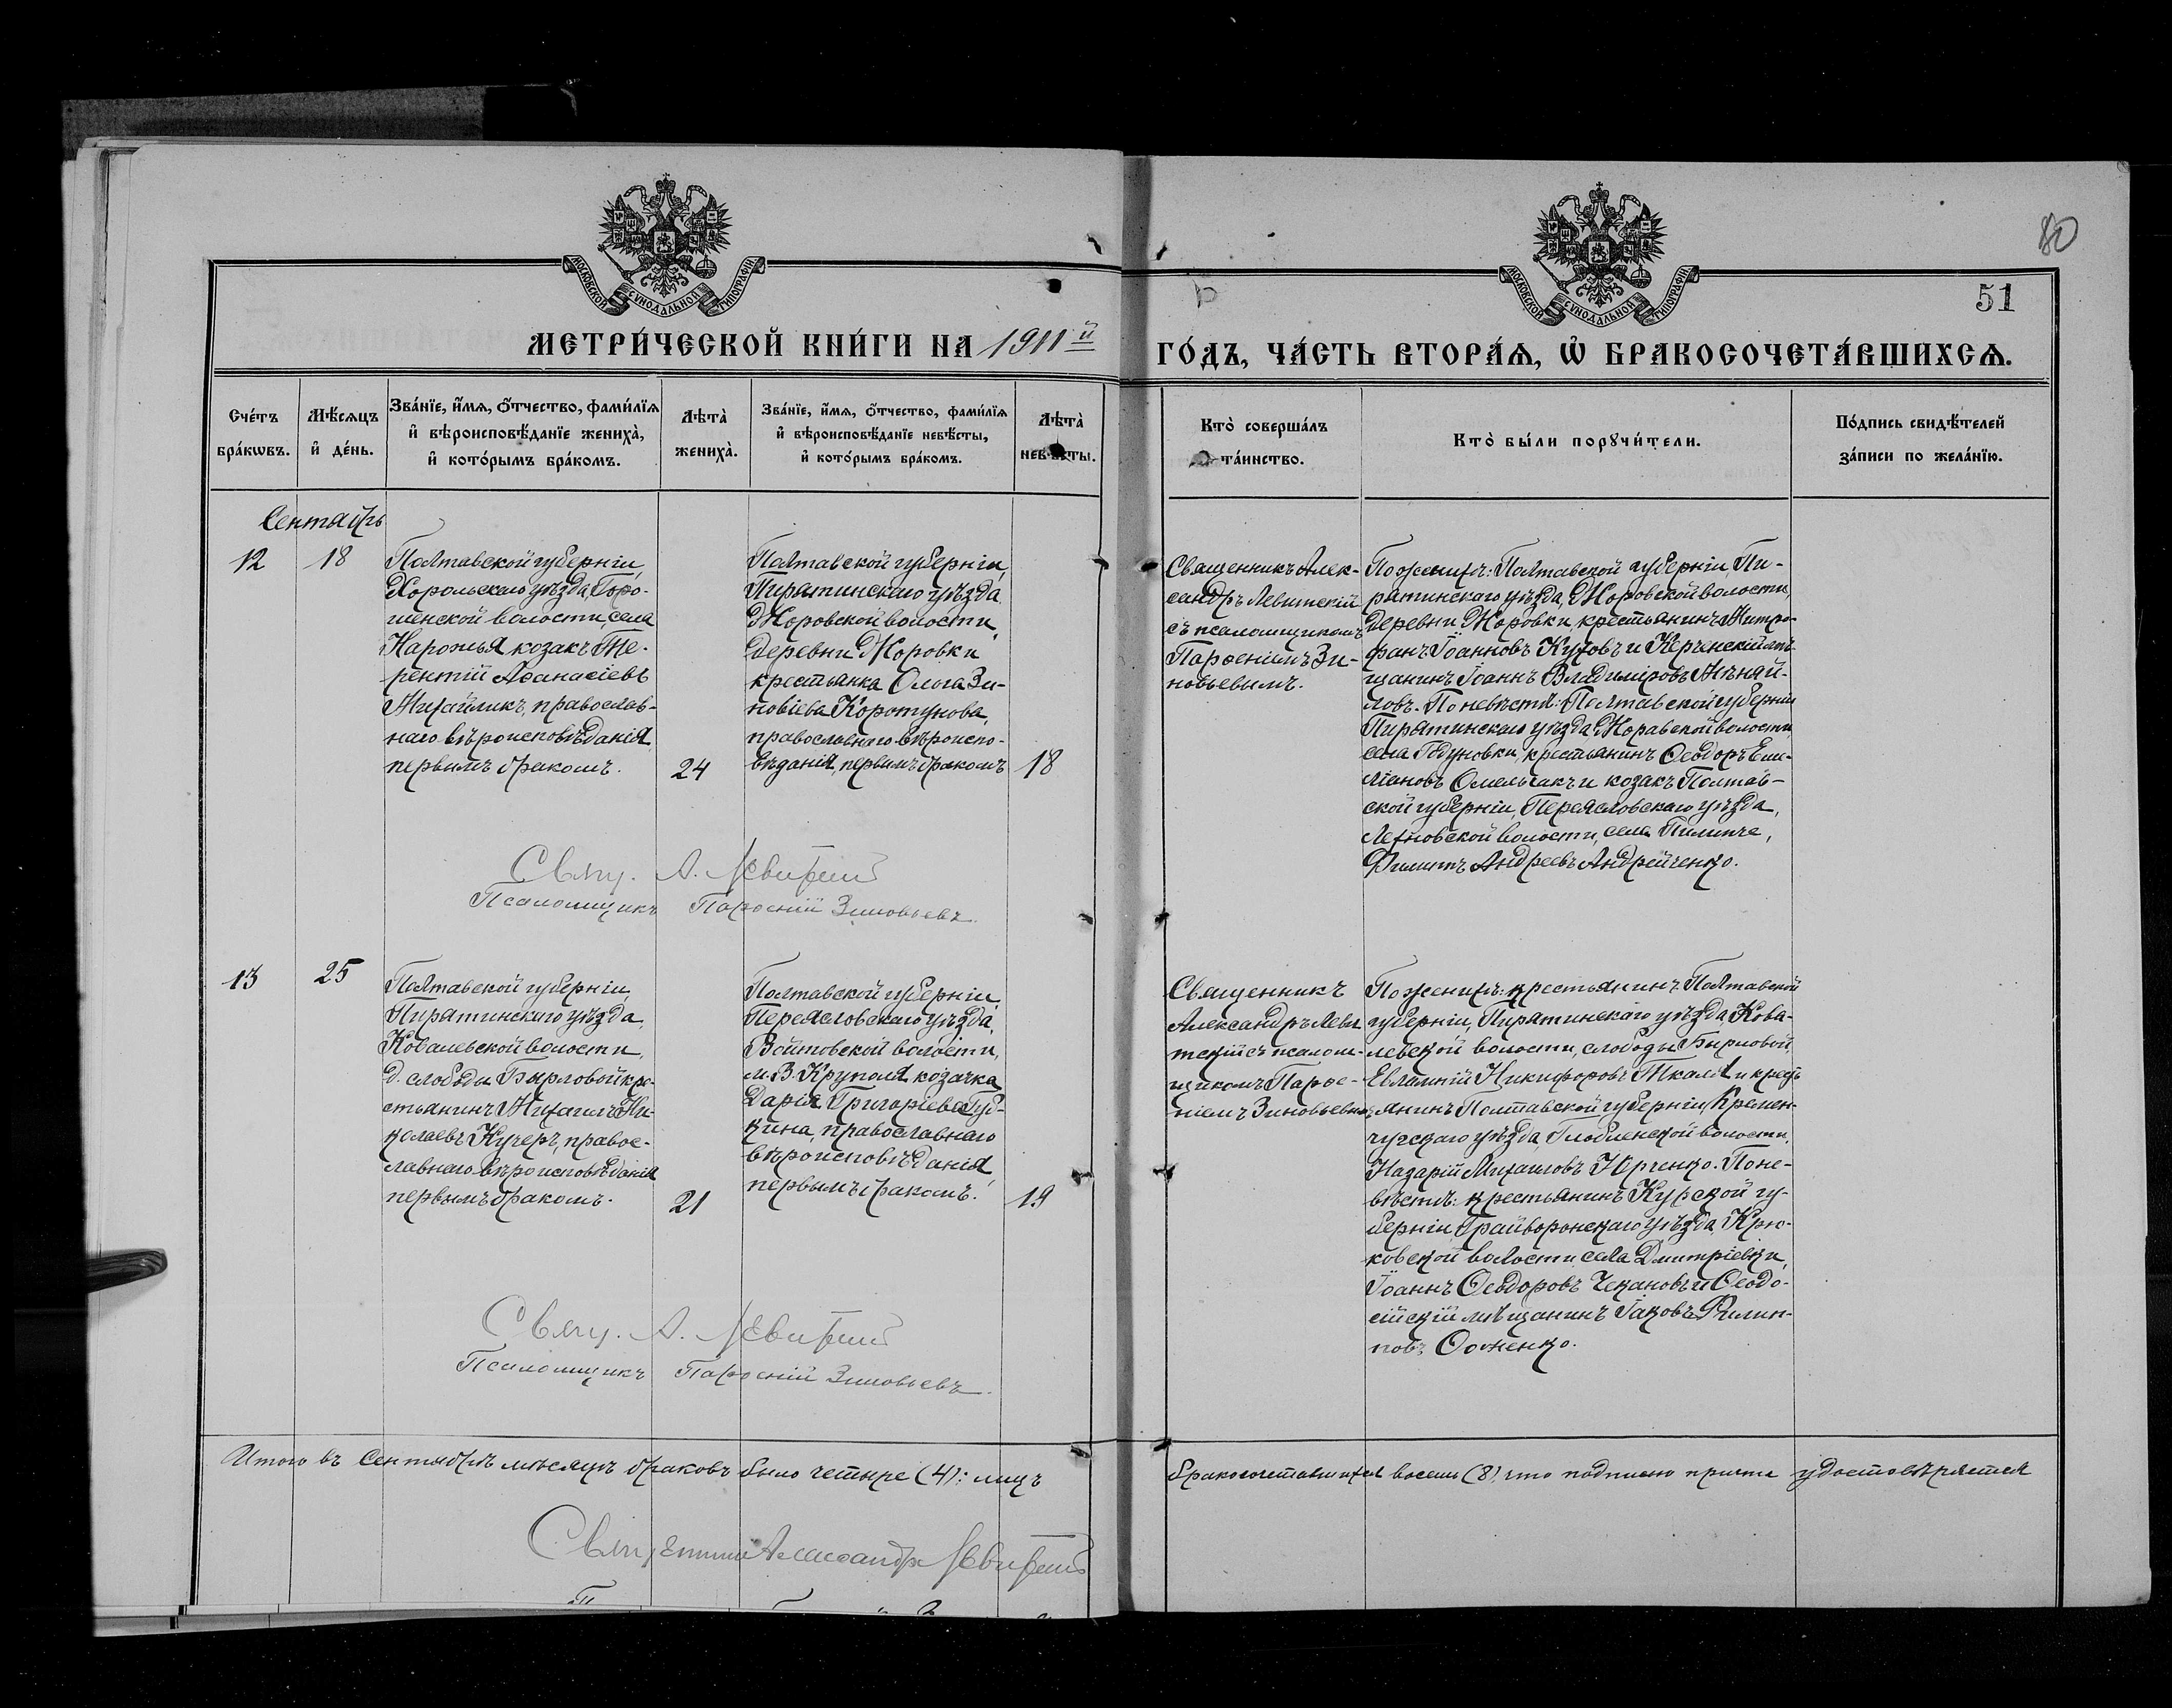 МОСКОВСКОЙ СУНОДАЛЬНОЙ ТИПОГРАФІИ
МОСКОВСКОЙ СУНОДАЛЬНОЙ ТИПОГРАФІИ
80
51
МЕТРИ́ЧЕСКОЙ КНИ́ГИ НА 1911й
ГО́ДЪ, ЧА́СТЬ ВТОРА́Ѧ, Ѽ БРАКОСОЧЕТА́ВШИХСѦ.
Счéтъ
брáкѡвъ.
Мѣ́сѧцъ
и҆ дéнь.
Звáнїе, и҆́мѧ, ѻ҆́тчество, фамѝлїѧ
и҆ вѣроисповѣ́данїе женихà,
и҆ котóрымъ брáкомъ.
Лѣтà
женихà.
Звáнїе, и҆́мѧ, ѻ҆́тчество, фамѝлїѧ
и҆ вѣроисповѣ́данїе невѣ́сты,
и҆ котóрымъ брáкомъ.
Лѣтà
невѣ́сты.
Ктò совершáлъ
тáинство.
Ктò бы́ли порꙋчи́тели.
Пóдпись свидѣ́телей
зáписи по желáнїю.
Сентябрь
12
18
Полтавской губерніи,
Хорольскаго уѣзда, Горо-
шенской волости, села
козакъ Те-
рентій Аѳанасіевъ
Михайликъ, православ-
наго вѣроисповѣданія
первымъ бракомъ.
24
Полтавской губерніи,
Пирятинскаго уѣзда,
Жоровской волости,
деревни Жоровки
крестьянка Ольга Зи-
новіева Коротунова,
православнаго вѣроиспо-
вѣданія, первымъ бракомъ
18
Священникъ Алек-
сандръ Левитскій
съ псаломщикомъ
Парѳеніемъ Зи-
новьевымъ.
По женихѣ: Полтавской губерніи, Пи-
рятинскаго уѣзда, Жоровской волости,
деревни Жоровки, крестьянинъ Митро-
фанъ Іоанновъ и Керченскій мѣ-
щанинъ Іоаннъ Владиміровъ
ловъ. По невѣстѣ: Полтавской губерніи
Пирятинскаго уѣзда, Жоравской волости,
села Годуновки, крестьянинъ Ѳеодоръ Еме-
ліановъ Омельчакъ и козакъ Полтав-
ской губерніи, Переясловскаго уѣзда,
волости, села Пилипче,
Филиппъ Андреевъ Андрейченко.
Свящ. А. Левитскій
Псаломщикъ Парѳеній Зиновьевъ.
13
25
Полтавской губерніи,
Пирятинскаго уѣзда,
Ковалевской волости,
д. слободы Бырловой кре-
стьянинъ Михаилъ Ни-
колаевъ Кучеръ, правос-
лавнаго вѣроисповѣданія
первымъ бракомъ.
21
Полтавской губерніи,
Переясловскаго уѣзда,
Войтовской волости,
м. В. Круполя козачка
Дарія Григоріева Губ-
кина, православнаго
вѣроисповѣданія,
первымъ бракомъ.
19
Священникъ
Александръ Леви
тскій съ псалом-
щикомъ Парѳе-
ніемъ Зиновьевымъ
По женихѣ: крестьянинъ Полтавской
губерніи, Пирятинскаго уѣзда, Кова-
левской волости, слободы Бырловой,
Евлампій Никифоровъ Ткаля и кресть
янинъ Полтавской губерніи, Кремен-
чугскаго уѣзда, Глобинской волости,
Назарій Михаиловъ По не-
вѣстѣ: крестьянинъ Курской гу-
берніи, Грайворонскаго уѣзда, Крю-
ковской волости, села Дмитріевки,
Іоаннъ Ѳеодоровъ Чекановъ и Ѳеодо-
сійскій мѣщанинъ Іаковъ Филип-
повъ
Свящ. А. Левитскій
Псаломщикъ Парѳеній Зиновьевъ.
Итого въ Сентябрѣ мѣсяцѣ браковъ было четыре (4): лицъ
бракосочетавшихся восемь (8), что подписью причта удостовѣряется
Священникъ Александръ Левитскій